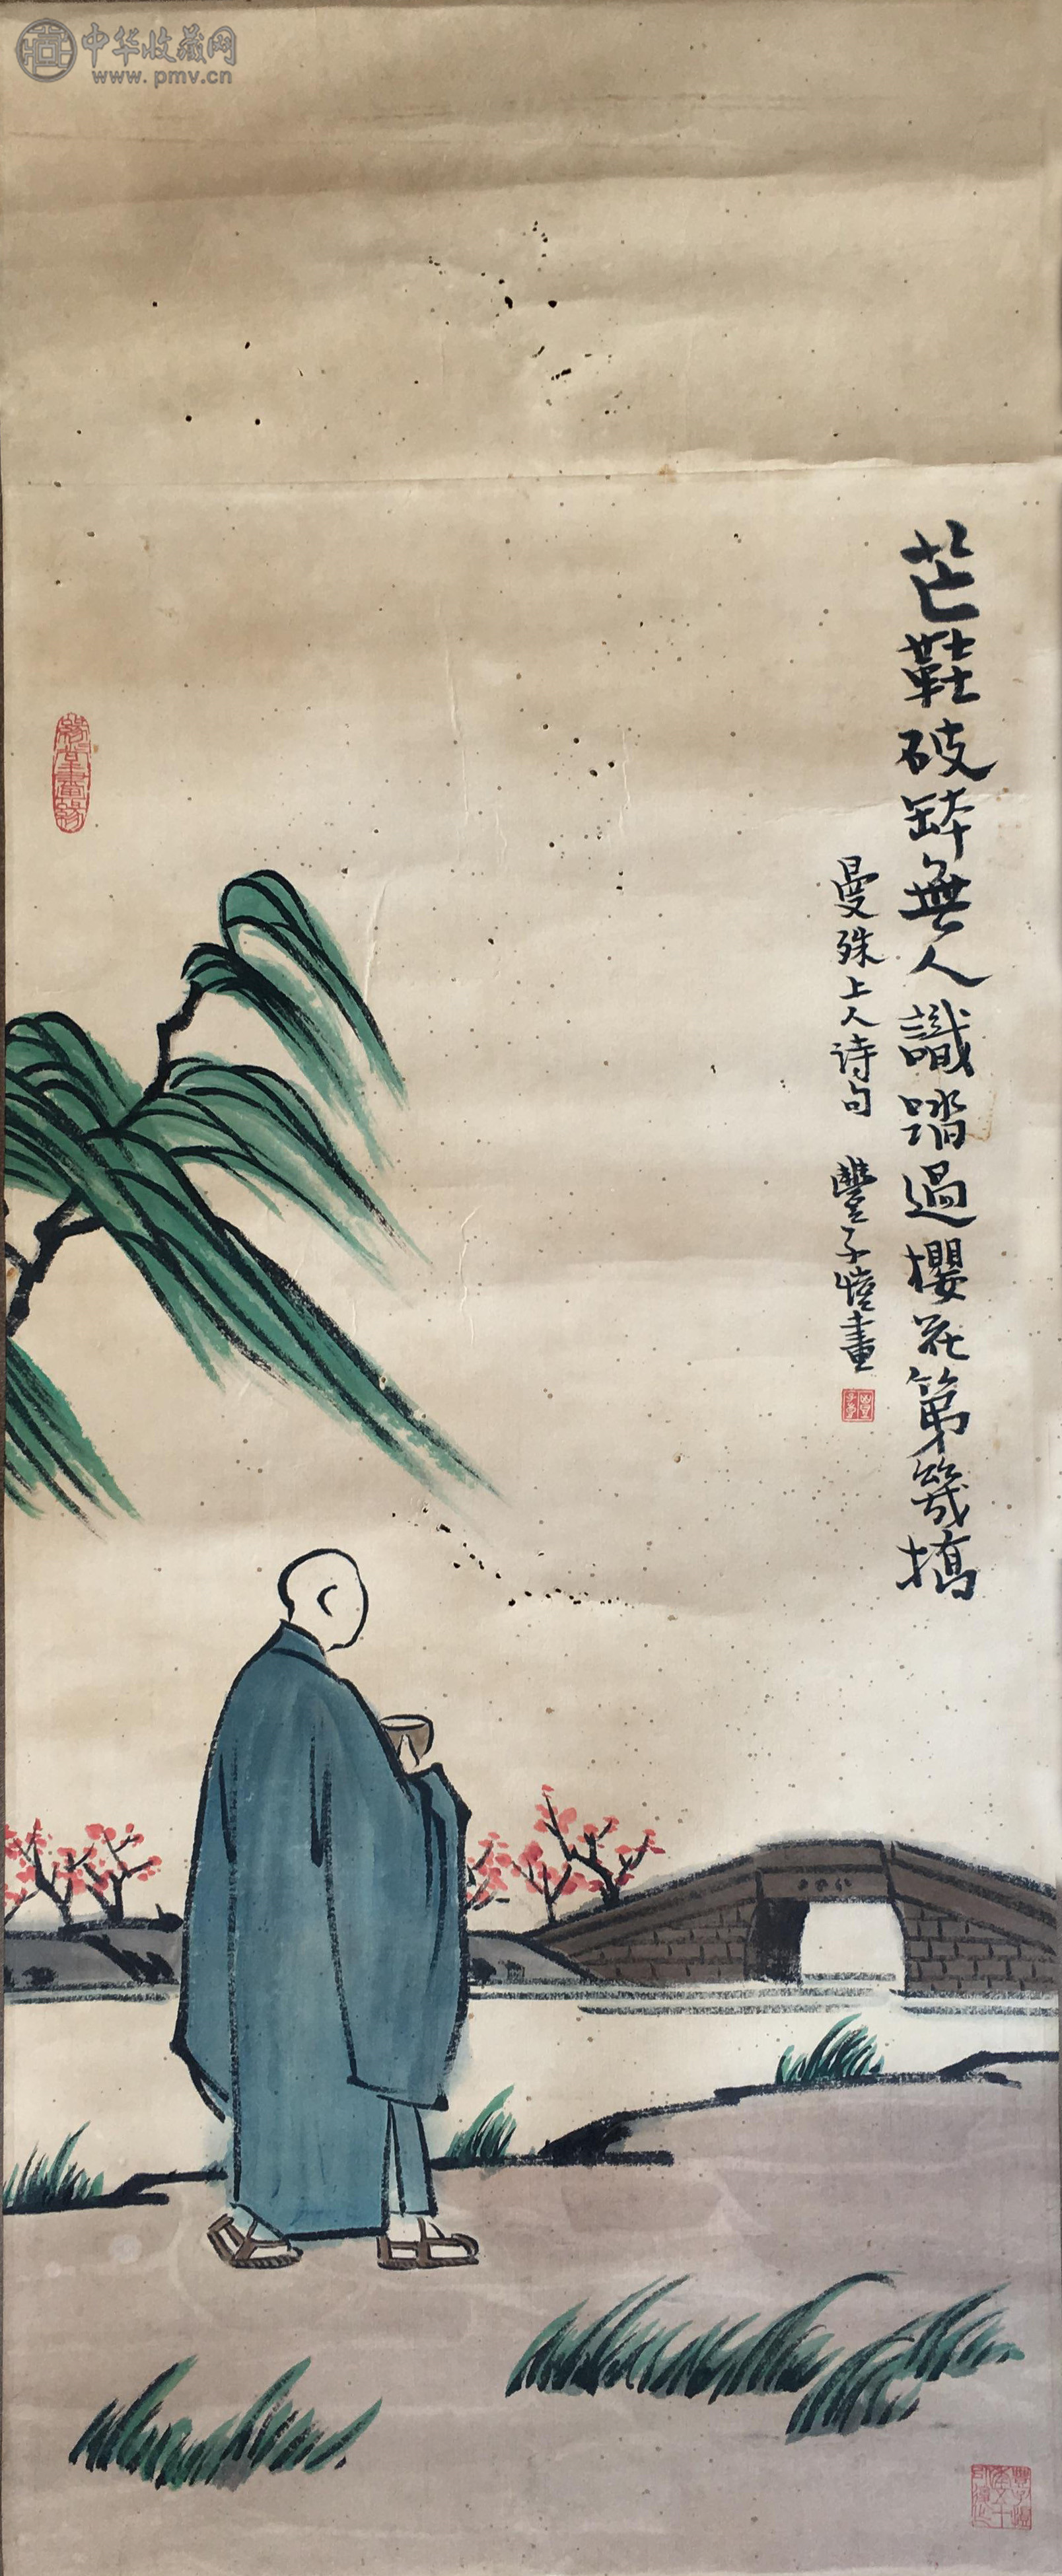 中华收藏网
www.pmv.cn
芒鞋破鉢無人識踏過櫻花第幾橋
曼殊上人诗句 豐子愷畫
緣堂畫箋